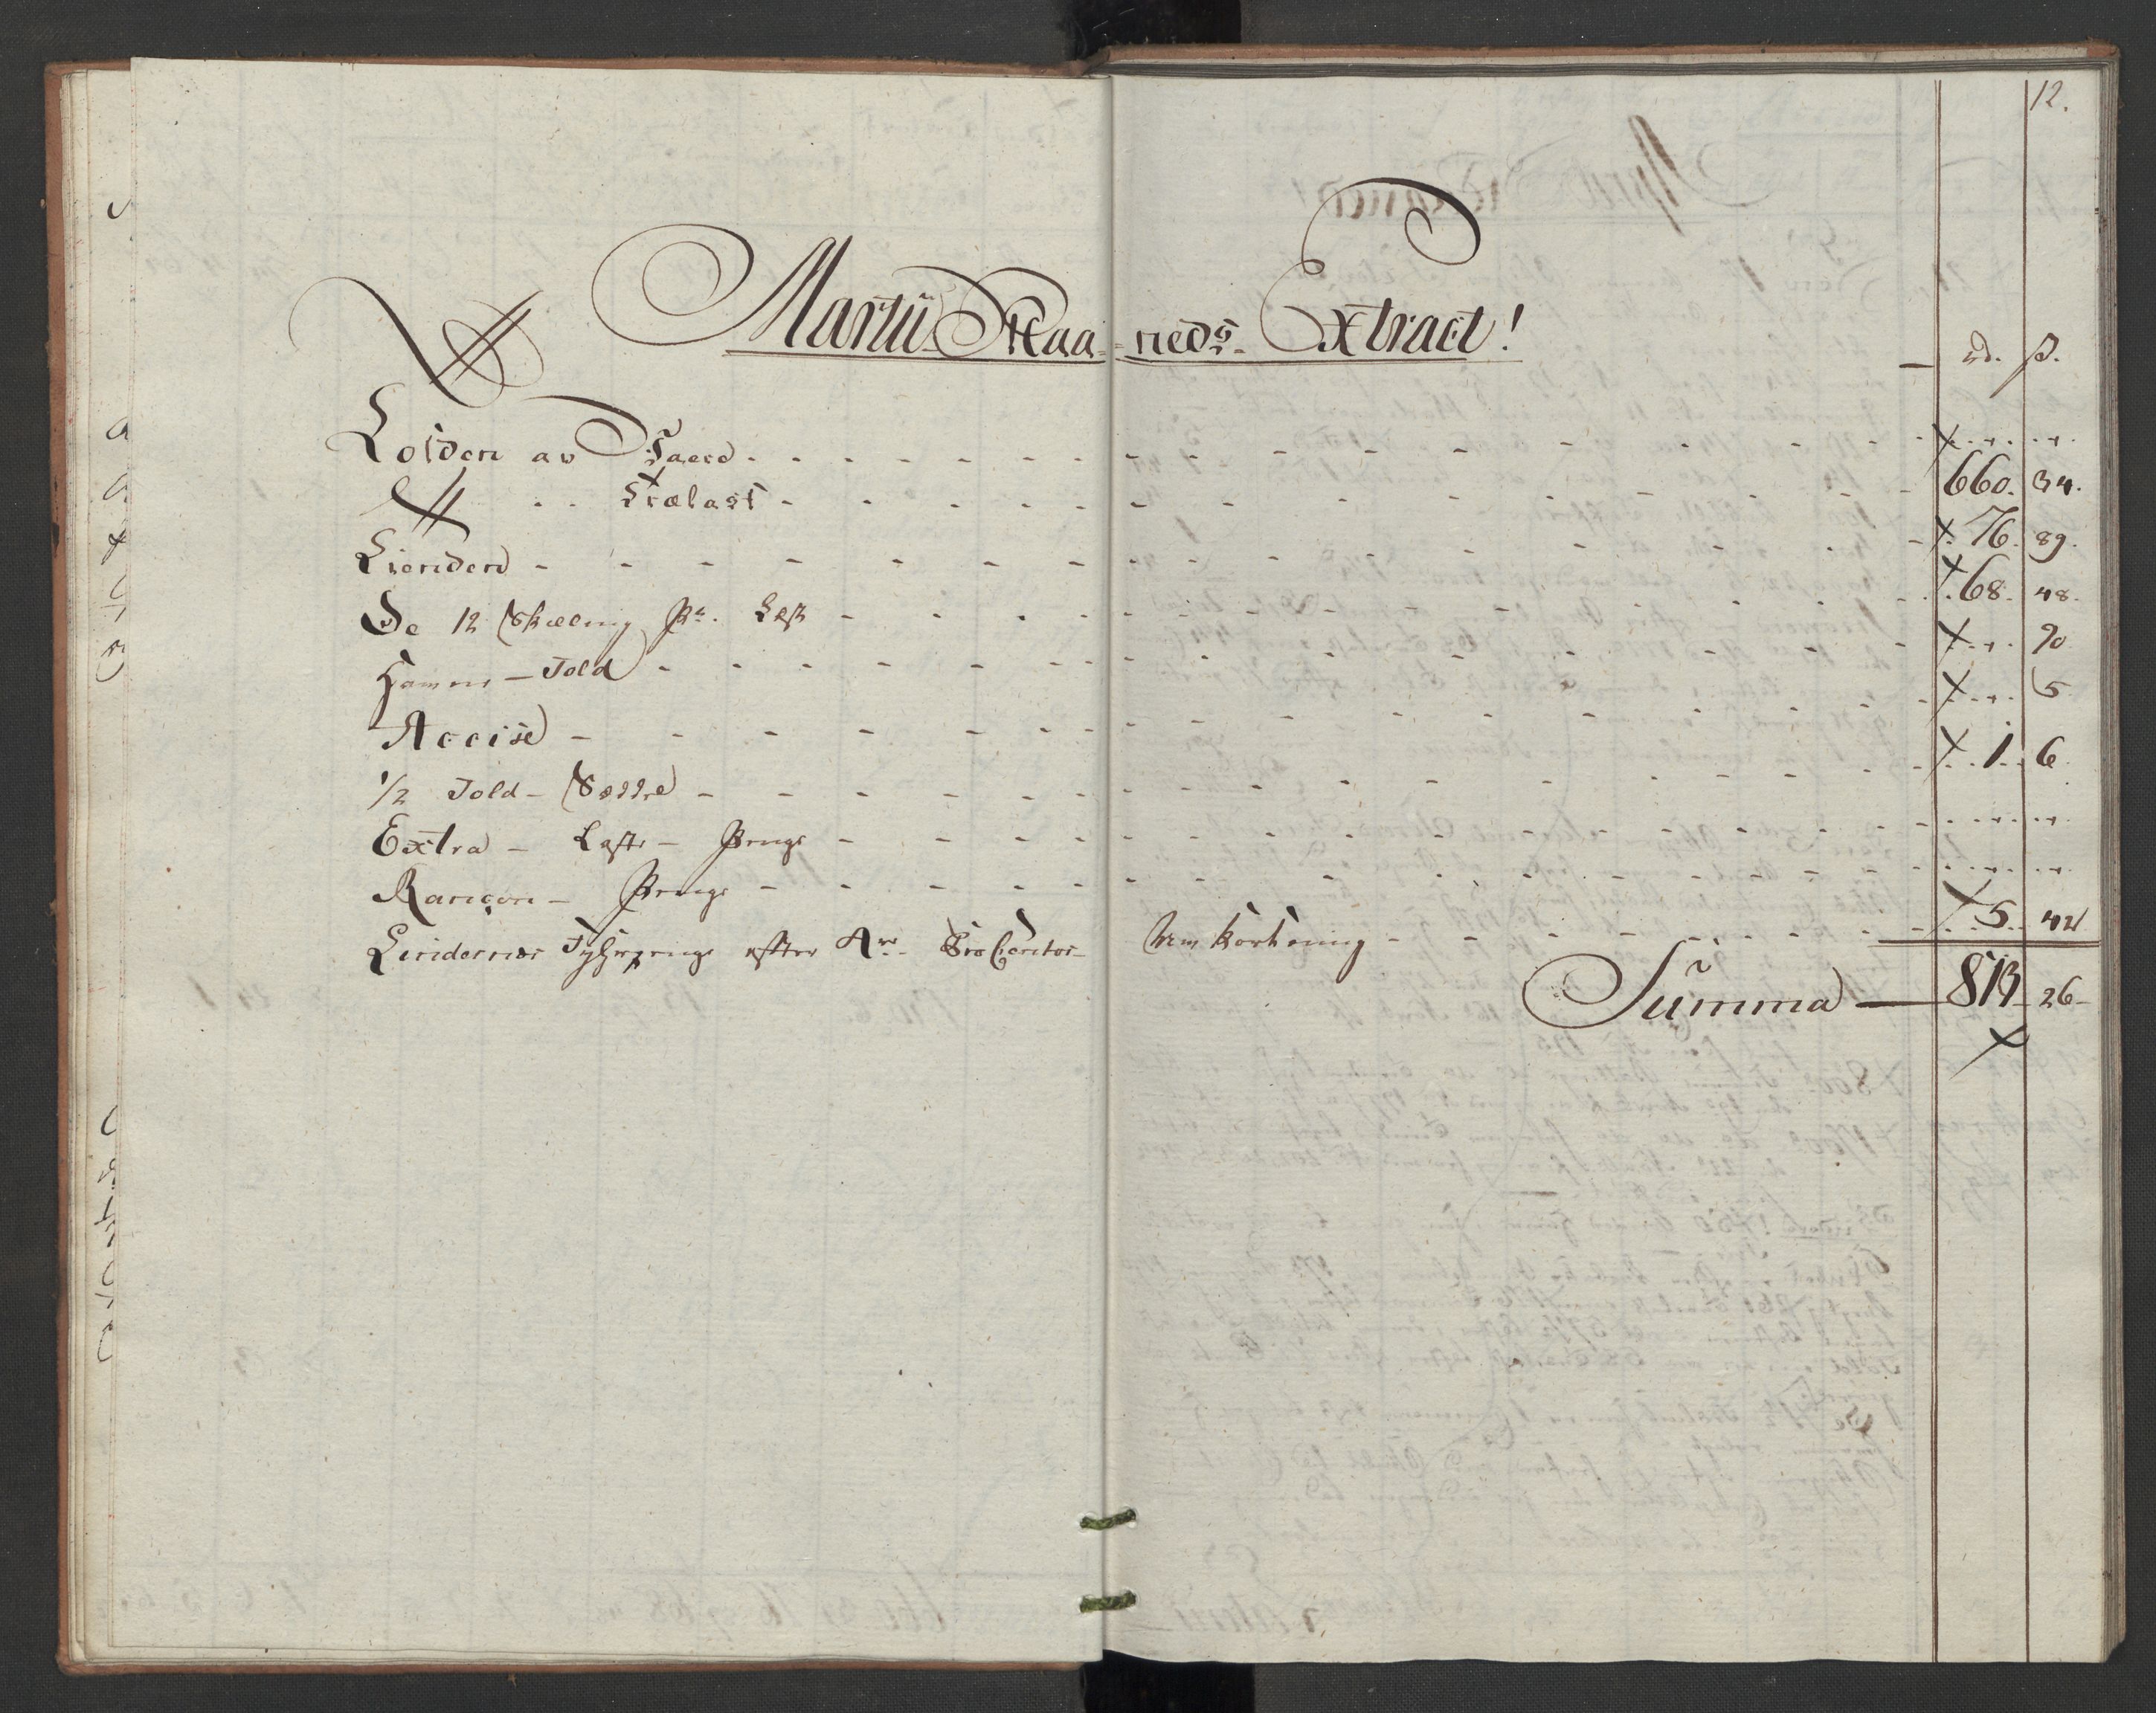 12.
Martii Maaneds Extract!
rd. ß.
Tolden av Faare - - - „ „
„ „ Trælast - - - 660. 34.
Tienden - - - 76. 89.
De 12 Skilling Pr. Lest - - - 68. 48.
Hawne-Told - - - „ 90
Accise - - - „ 5
1/2 Told-Sedle - - - 1. 6
Extra-Læste-Penge - - - „ „
Rançon-Penge - - - „ „
Lindernes Fyhrpenge efter Procentos kortning - - - 5. 42
Summa - 813 - 26 -